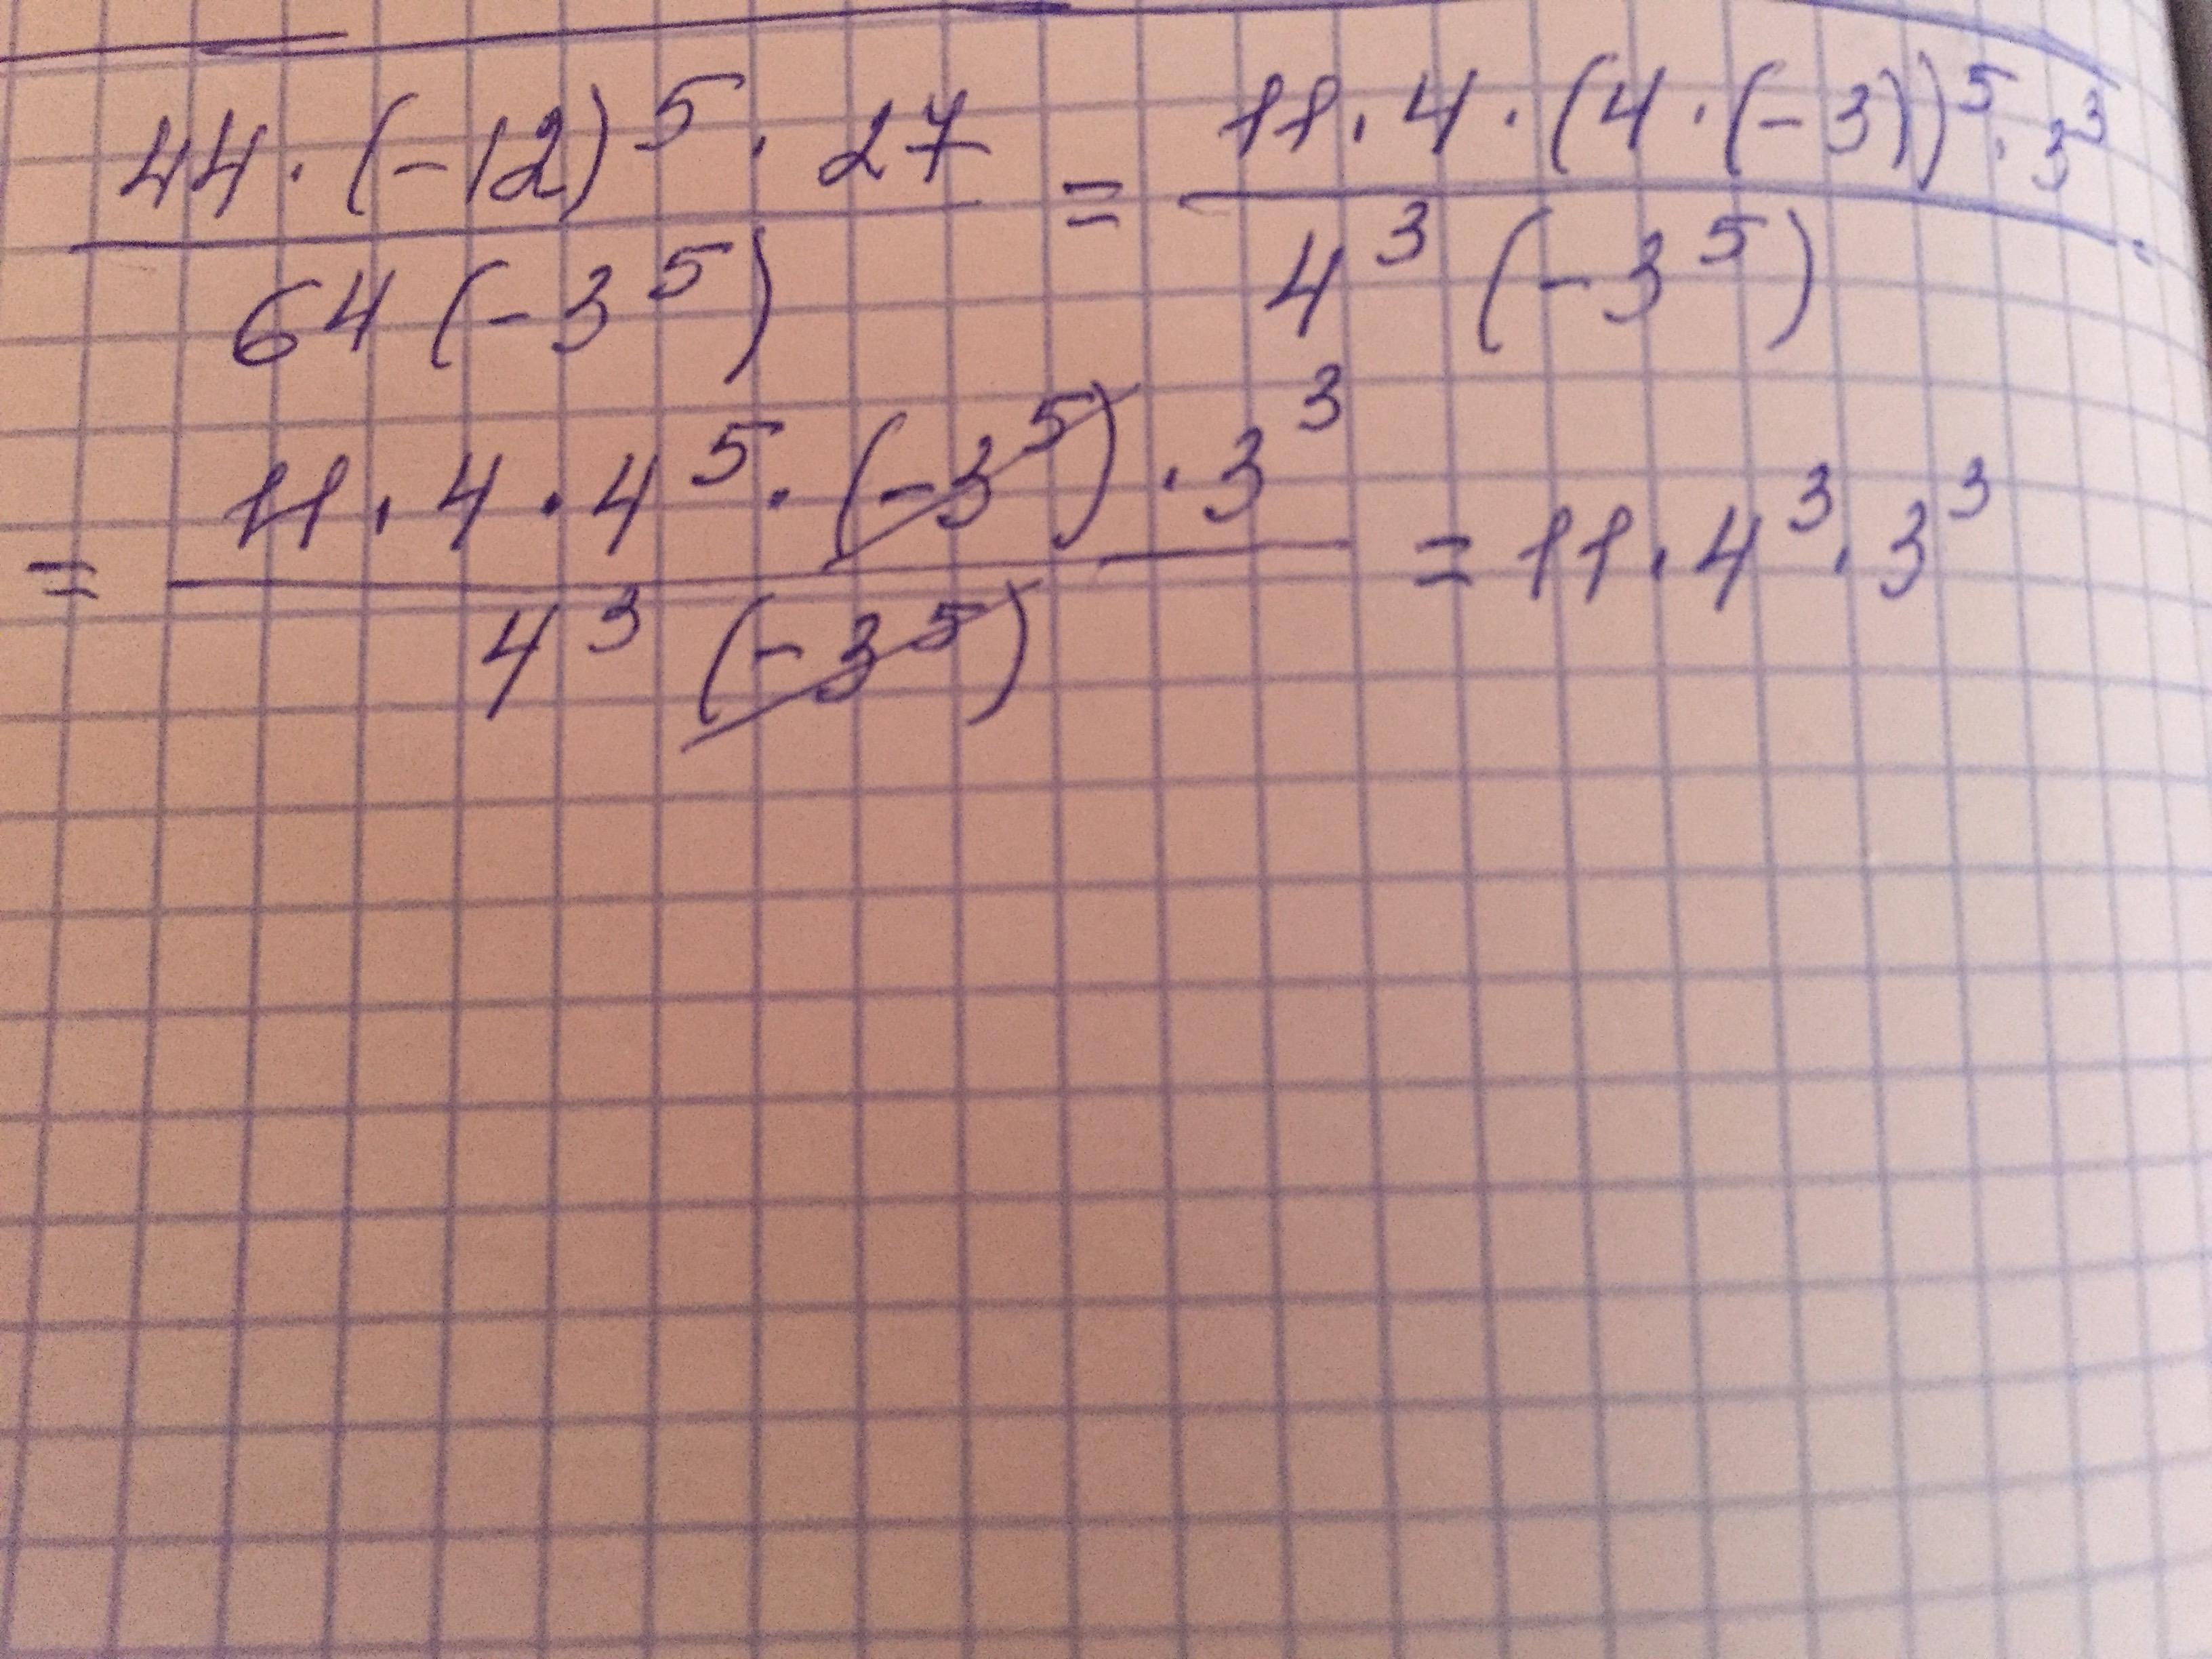 44 · (-12)⁵ · 27 / 64 (-3⁵) = 11 · 4 · (4 · (-3))⁵ · 3³ / 4³ (-3⁵) =
= 11 · 4 · 4⁵ · (-3⁵) · 3³ / 4³ (-3⁵) = 11 · 4³ · 3³